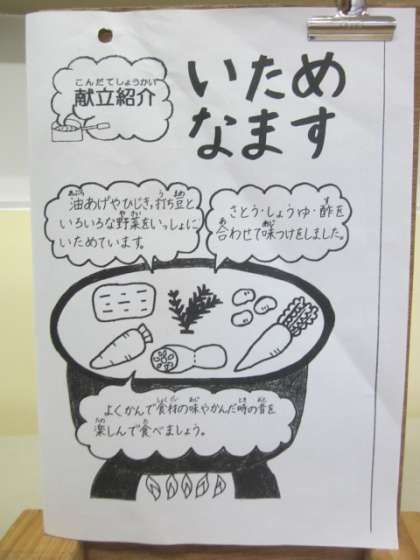 こんだてしょうかい
献立紹介
いため
なます
油あげやひじき、打ち豆と
いろいろな野菜をいっしょに
いためています。
さとう・しょうゆ・酢を
合わせて味つけをしました。
よくかんで食材の味やかんだ時の音を
楽しんで食べましょう。